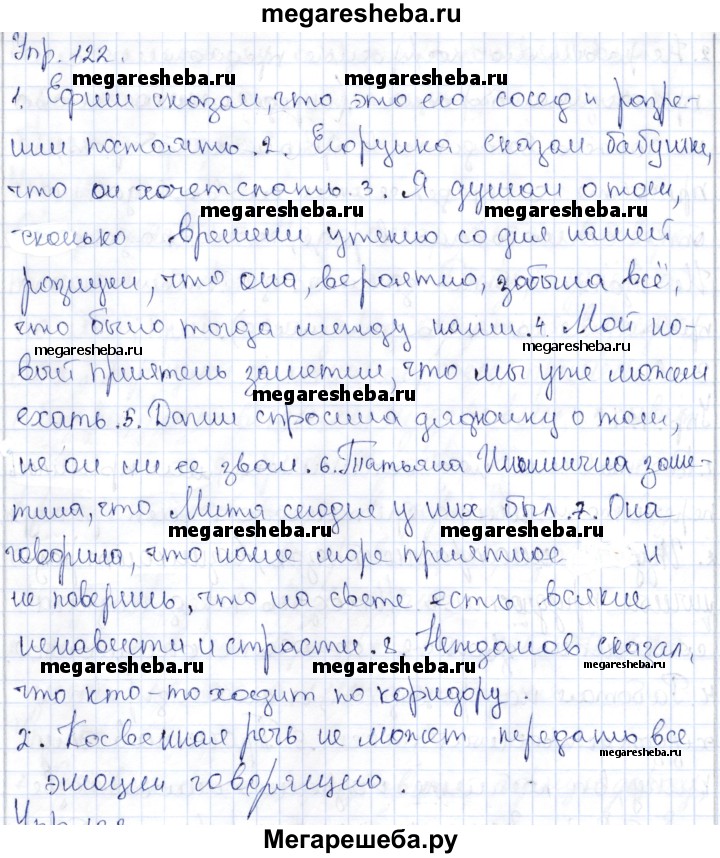 megaresheba.ru
Упр. 122.
megaresheba.ru megaresheba.ru
1. Ефим сказал, что это его сосед и разре-
шил постоять. 2. Егорушка сказал бабушке,
что он хочет спать. 3. Я думал о том,
megaresheba.ru megaresheba.ru
сколько времени утекло со дня нашей
разлуки, что она, вероятно, забыла всё,
что было тогда между нами. 4. Мой но-
megaresheba.ru megaresheba.ru
вый приятель заметил, что мы уже можем
megaresheba.ru
ехать. 5. Дапи спросила дядюшку о том,
не он ли ее звал. 6. Татьяна Ильинична заме-
тила, что Митя сегодня у них был. 7. Она
megaresheba.ru megaresheba.ru
говорила, что наше море приятное и
не поверишь, что на свете есть всякие
ненависти и страсти. 8. Нежданов сказал,
megaresheba.ru megaresheba.ru megaresheba.ru
что кто-то ходит по коридору.
2. Косвенная речь не может передать все
megaresheba.ru
эмоции говорящего.
Мегарешеба.ру